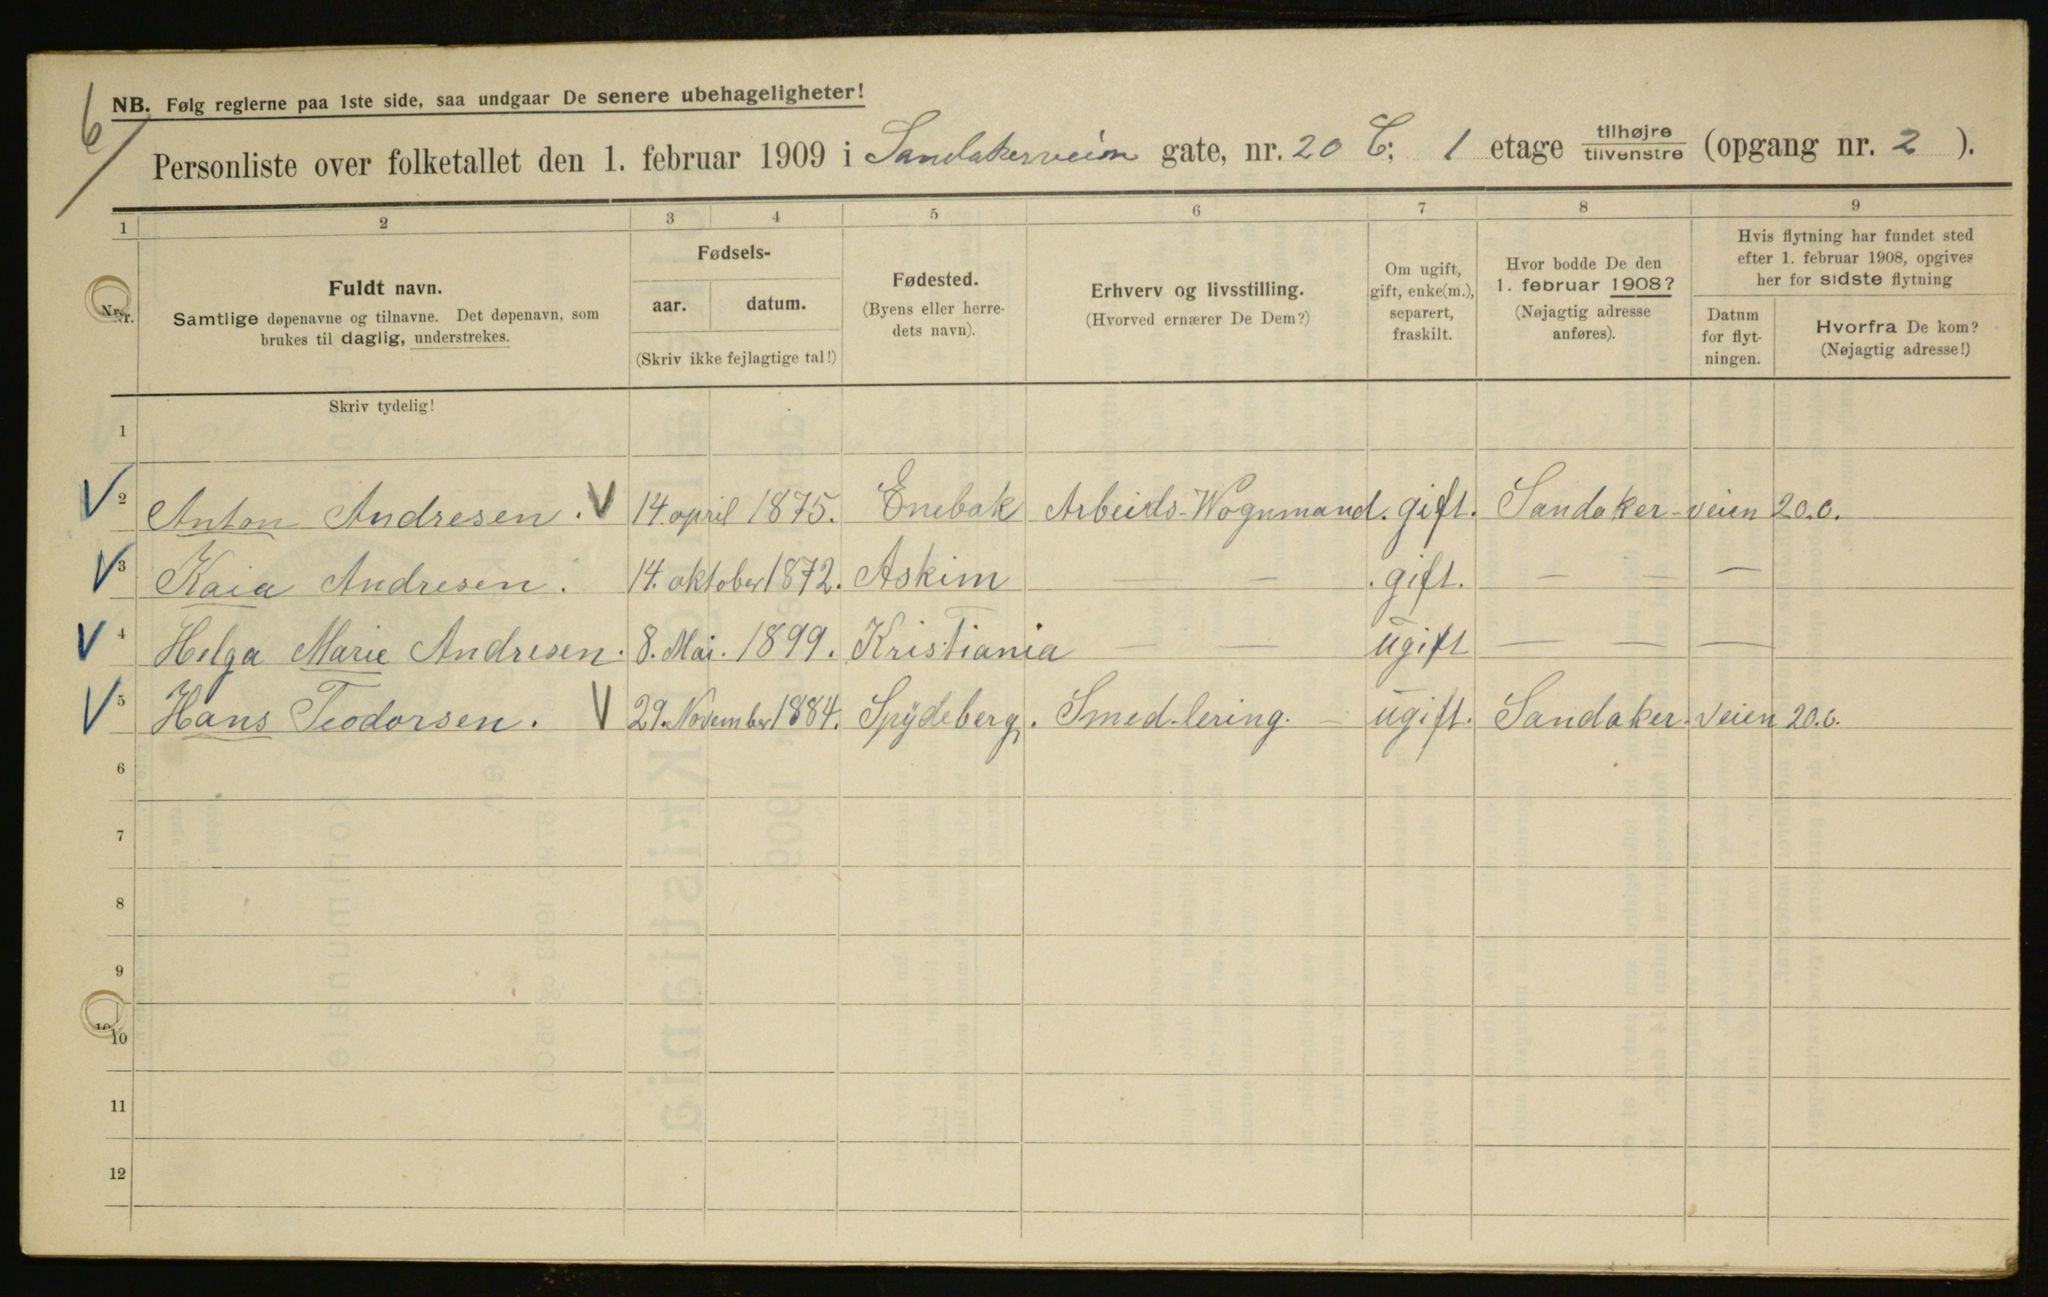 6/
NB. Følg reglerne paa 1ste side, saa undgaar De senere ubehageligheter!
Personliste over folketallet den 1. februar 1909 i Sandakerveien gate, nr. 20 C; 1 etage tilhøjre/tilvenstre (opgang nr. 2 ).
1 2 3 4 5 6 7 8 9
Nr. Fuldt navn. Samtlige døpenavne og tilnavne. Det døpenavn, som brukes til daglig, understrekes.
Fødsels- aar. datum. (Skriv ikke fejlagtige tal!)
Fødested. (Byens eller herredets navn).
Erhverv og livsstilling. (Hvorved ernærer De Dem?)
Om ugift, gift, enke(m.), separert, fraskilt.
Hvor bodde De den 1. februar 1908? (Nøjagtig adresse anføres).
Hvis flytning har fundet sted efter 1. februar 1908, opgives her for sidste flytning
Datum for flytningen.
Hvorfra De kom? (Nøjagtig adresse!)
Skriv tydelig!
1
V 2 Anton Andresen. V 14 april 1875. Enebak Arbeids-Wognmand. gift. Sandaker-veien 20.c.
V 3 Kaia Andresen. 14. oktober 1872. Askim — — . gift. — — —
V 4 Helga Marie Andresen. 8. Mai. 1899. Kristiania — — ugift — — —
V 5 Hans Teodorsen. V 29. November 1884. Spydeberg. Smed-lering. — ugift. Sandaker-veien 20.c.
6
7
8
9
10
11
12